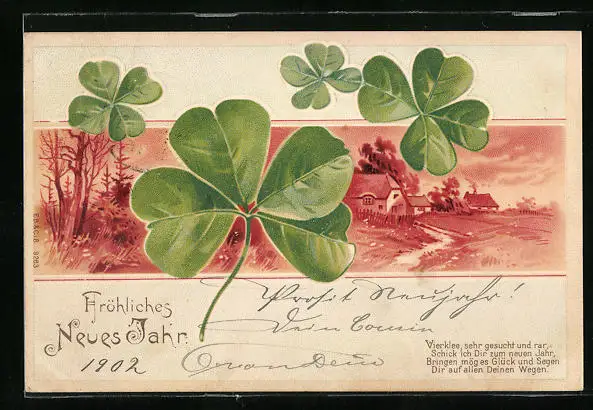 EB&C i/B 9263
Fröhliches
Neues Jahr.
1902
Prosit Neujahr!
Dein Cousin
Vierklee, sehr gesucht und rar,
Schick ich Dir zum neuen Jahr,
Bringen mög es Glück und Segen
Dir auf allen Deinen Wegen.